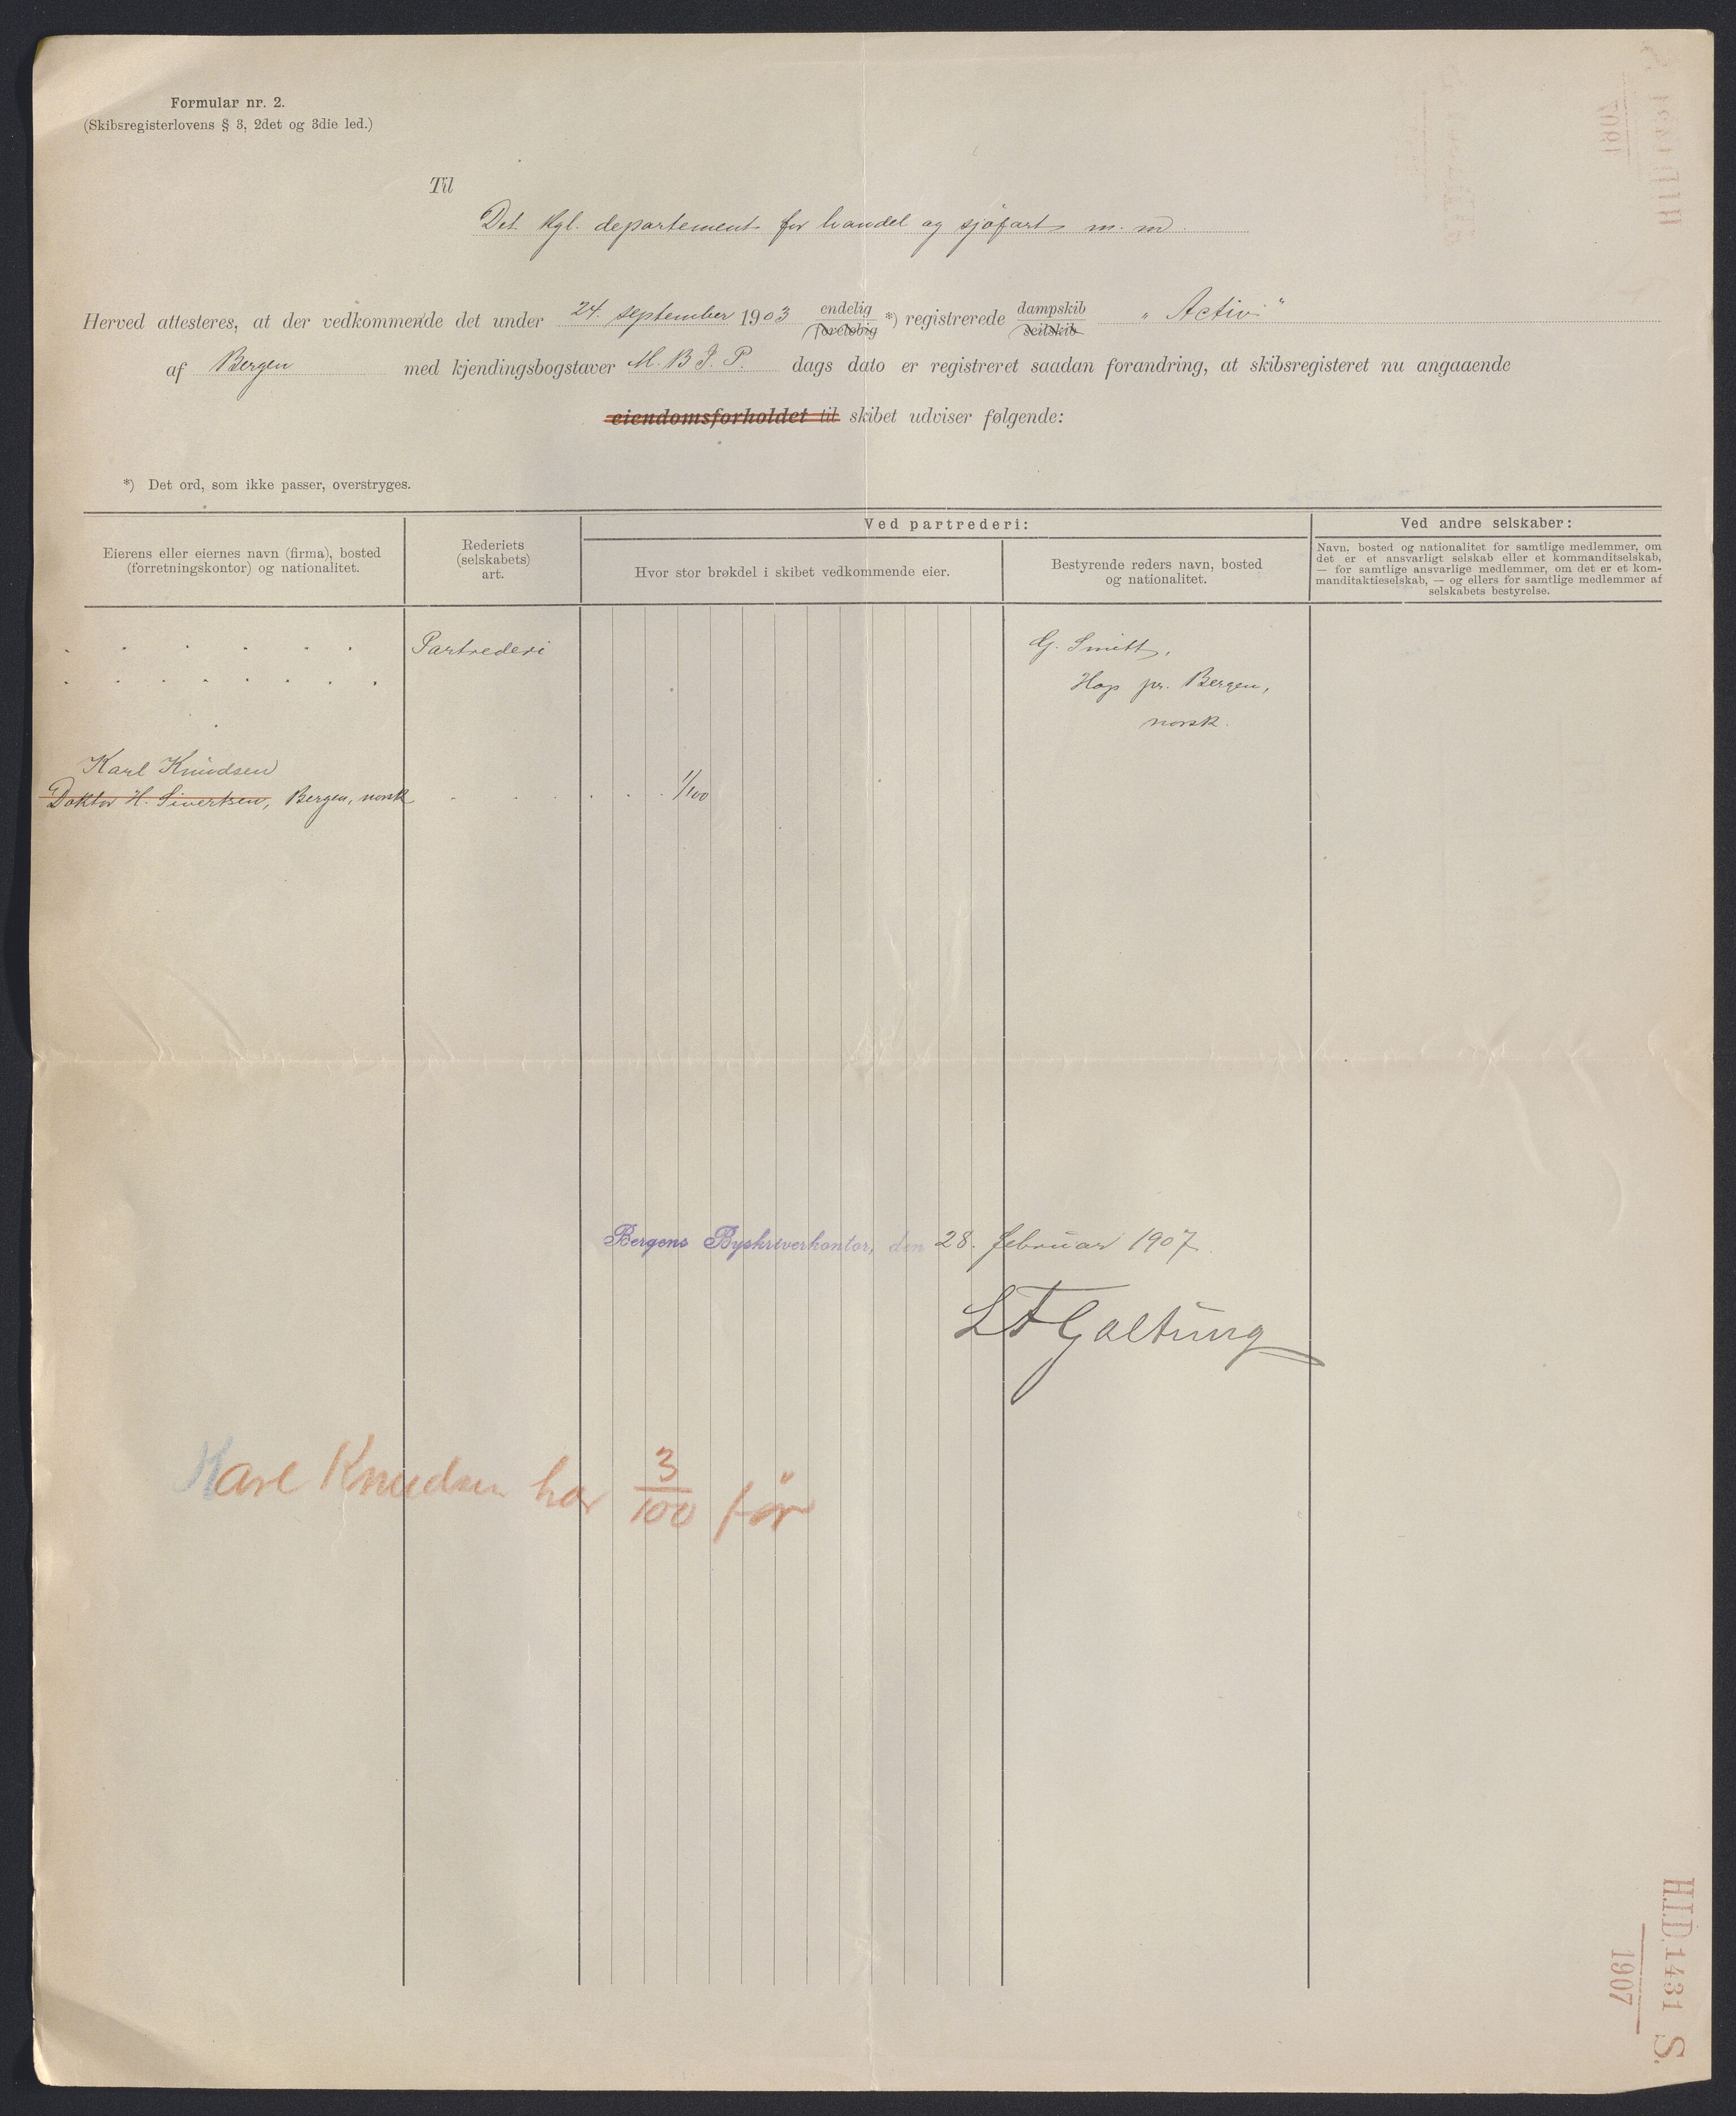 Formular nr. 2.
(Skibsregisterlovens § 3, 2det og 3die led.)
Til
Det kgl. departement for handel og sjøfart m. m.
Herved attesteres, at der vedkommende det under 24. september 1903 endelig *) registrerede dampskib "Activ"
foreløbig seilskib
af Bergen med kjendingsbogstaver M. B. J. P. dags dato er registreret saadan forandring, at skibsregisteret nu angaaende
eiendomsforholdet til skibet udviser følgende:
*) Det ord, som ikke passer, overstryges.
Eierens eller eiernes navn (firma), bosted
(forretningskontor) og nationalitet.
Rederiets
(selskabets)
art.
Ved partrederi:
Hvor stor brøkdel i skibet vedkommende eier.
Bestyrende reders navn, bosted
og nationalitet.
Ved andre selskaber:
Navn, bosted og nationalitet for samtlige medlemmer, om
det er et ansvarligt selskab eller et kommanditselskab,
— for samtlige ansvarlige medlemmer, om det er et kom-
manditaktieselskab, — og ellers for samtlige medlemmer af
selskabets bestyrelse.
Partrederi
G. Smitt,
Hop pr. Bergen,
norsk.
Karl Knudsen
Doktor H. Sivertsen, Bergen, norsk 1/100
Bergens Byskriverkontor, den 28. februar 1907.
L F Galtung
Karl Knudsen har 3/100 før
H.I.D. 1431 S.
1907